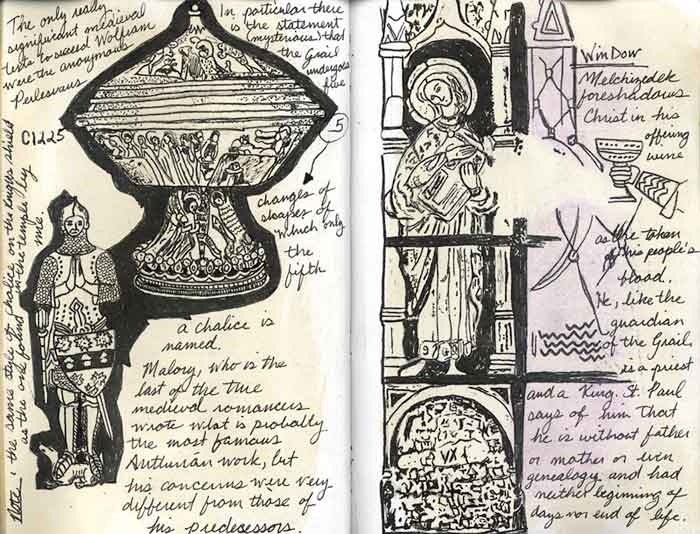 The only really
significant medieval
texts to succeed Wolfram
were the anonymous
Perlesvaus
C1225
In particular there
is the statement
(mysterious) that
the Grail
undergoes
five
5
changes of
shapes of
which only
the
fifth
a chalice is
named.
Malory, who is the
last of the true
medieval romancers
wrote what is probably
the most famous
Arthurian work, but
his concerns were very
different from those of
his predecessors.
Note: the same style of chalice on the knights shield
as the one found in the temple by
me
Window
Melchizedek
foreshadows
Christ in his
offering
wine
as the token
of his people's
blood.
He, like the
guardian
of the Grail,
is a priest
and a King. St. Paul
says of him that
he is without father
or mother or even
genealogy, and had
neither beginning of
days nor end of life.